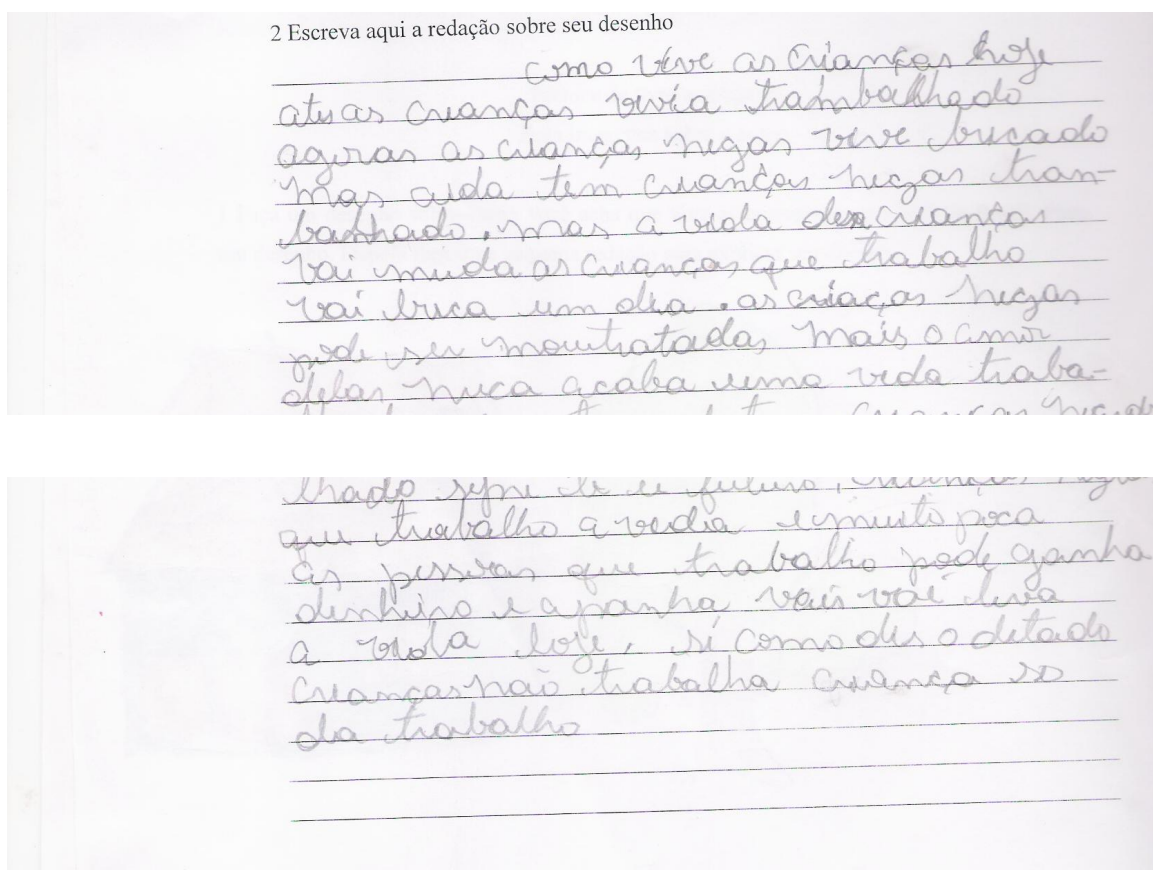 2 Escreva aqui a redação sobre seu desenho
como vive as crianças hoje
atras crianças vivia trambalhado
agoras as crianças negas vive bricado
mas aida tem crianças negas tran-
balhado. mas a vida das crianças
vai muda as crianças que trabalho
vai brica um dia. as criaças negas
pode ser moutratadas mais o amor
delas nuca acaba uma vida traba-
lhado sepre
que trabalho a vida e muito poca
as pessoas que trabalho pode ganha
dinhiro e apanha vai leva
a vida loje, si como dis o detado
crianças não trabalha criança so
da trabalho